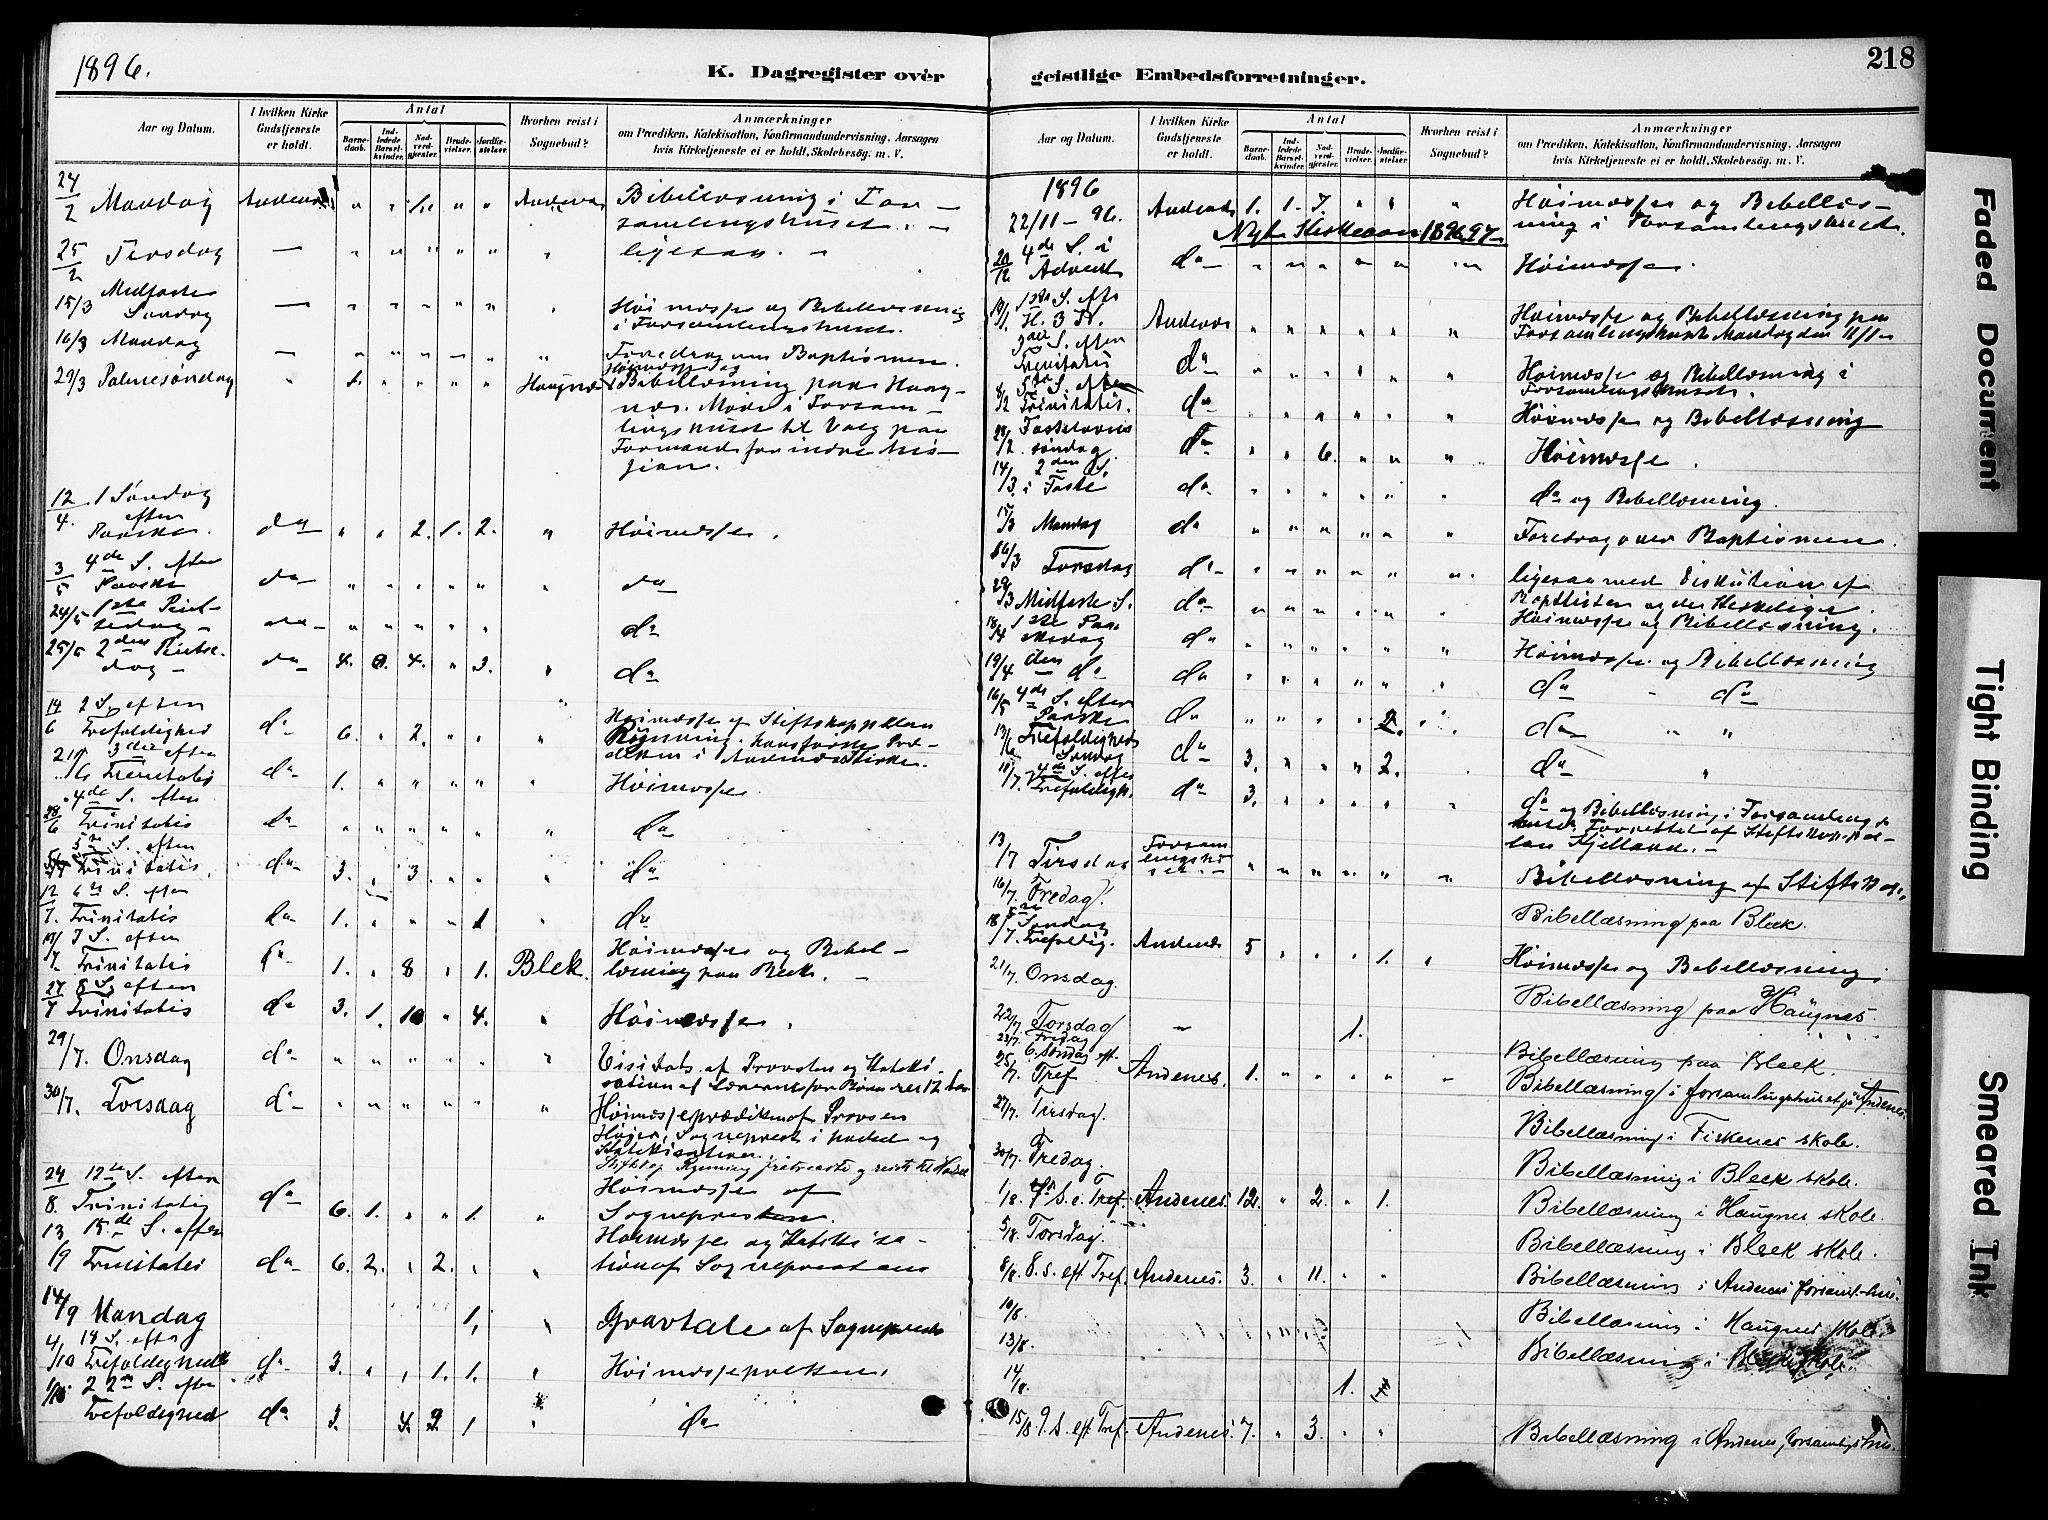 1896.
K. Dagregister over
Aar og Datum.
I hvilken Kirke Gudstjeneste er holdt.
Antal
Barnedaab.
Indledede Barselkvinder.
Nadverdgjester.
Brudevielser.
Jordfæstelser.
Hvorhen reist i Sognebud?
Anmærkninger
om Prædiken, Katekisation, Konfirmandundervisning, Aarsagen
hvis Kirketjeneste ei er holdt, Skolebesög. m. V.
24/2 Mandag Andenæs " " 1. " " Bibellæsning i For-
samlingshuset. -
25/2 Tirsdag — " " " " " " ligesaa. -
Midfaste
15/3 Søndag — " " " " " " Høimæsse og Bibellæsning
i Forsamlingshuset.
16/3 Mandag — " " " " " " Foredrag om Baptismen.
Høimæsse og
29/3 Palmesøndag " " " " " Haugnæs Bibellæsning paa Haug-
næs. Møde i Forsam-
lingshuset til Valg paa
Formand for indre Mis-
sion.
12/4. 1 Søndag
efter
Paaske. do " " 2. 1. 2. " Høimæsse.
3/5 4de S. efter
Paaske do " " " " " " do
24/5 1ste Pint-
sedag - do " " " " " do
25/5 2den Pintse-
dag - do 4. 4. " 3. " do
14/6 2 S. efter
Trefoldighed do 6. " 2. " " " Høimæsse af Stiftskappellan
Rønning.
21/6 3die efter
Trinitatis do 1. " " " " " Høimæsse
28/6 4de S. efter
Trinitatis do " " " " " " do
5te S. efter
Trinitatis. do 3. " 3. " " " do
12/7. 6te S. efter
Trinitatis do 1. " " " 1 " do
19/7 7 S. efter
Trinitatis do 1. " 8 " 1. Blek. Høimæsse og Bibel-
læsning paa Bleek. -
8 S. efter
Trinitatis do 3. 1. 10 " 4. " Høimæsse.
29/7. Onsdag do " " " " " " Visitats af Provsten og Kateki-
sation af
30/7. Torsdag do " " " " " " Høimesseprædiken af Provsten
Højer, Sogneprest i og
Katekisationen.
24/8. 12te S. efter
Trinitatis do 6. 1. " " 1. " Høimæsse af
Sognepresten.
13/9 15de S. efter
Trinitatis do 6. 2. " 2. " " Høimæsse og Katekisa-
tion af Sognepresten
14/9 Mandag 1. " Gravtale af Sognepresten
4/10 18 S. efter
Trefoldighed do 3. " " 1. 1. " Høimæsse
22de S. efter
Trefoldighed do 3. 4. 2. 1 " do
218
geistlige Embedsforretninger.
Aar og Datum.
I hvilken Kirke Gudstjeneste er holdt.
Antal
Barnedaab.
Indledede Barselkvinder.
Nadverdgjester.
Brudevielser.
Jordfæstelser.
Hvorhen reist i Sognebud?
Anmærkninger
om Prædiken, Katekisation, Konfirmandundervisning, Aarsagen
hvis Kirketjeneste ei er holdt, Skolebesög. m. V.
1896
22/11 - 96. Andenæs 1. 1. 7. " " " Høimæsse og Bibellæs-
ning i Forsamlingshuset.
Nyt Kirkeaar 1896-97
20/12 4de S. i
Advent do " " " " " " Høimæsse.
1ste S. efter
H. 3 K. Andenæs " " " " " " Høimæsse og Bibellæsning paa
Forsamlingshuset Mandag den 11/1
3die S. efter
Trinitatis do " " " " " " Høimæsse og Bibellæsning i
Forsamlingshuset.
5te S. efter
Trinitatis. do " " " " " " Høimæsse og Bibellæsning
28/2. Fastelavns
søndag do " " 6. " " " Høimæsse.
14/3. 2den S.
i Faste do " " " " " " do og Bibellæsning.
15/3 Mandag do " " " " " " Foredrag over Baptismen.
Torsdag do " " " " " " ligesaa med Diskution af
Baptisten og den Kirkelige.
Midfaste S. do " " " " " " Høimæsse og Bibellæsning.
18/4 1ste Paa-
skedag do " " " " " " Høimæsse og Bibellæsning
19/4 2den do do " " " " " " do " do
16/5 4de S. efter
Paaske do " " " " 2. " do " "
13/6 Trefoldigheds
Søndag do 3. " " " 2. do "
4de S. efter
Trefoldigh. do 3. " " " " " do og Bibellæsning i Forsamlings
huset. Forrettet af Stiftskappel-
lan Kjelland. -
13/7 Tirsdag Forsam-
lingshu-
set. - " " " " " " Bibellæsning af Stiftskap.
16/7. Fredag. Bibellæsning paa Bleek.
18/7. 5te Søndag
Trefoldig. Andenæs 5 " " " 1. " Høimæsse og Bibellæsning.
21/7. Onsdag. Bibellæsning paa Haugnes.
22/7. Torsdag " 1.
23/7. Fredag Bibellæsning paa Bleek.
25/7. 6. Søndag eft.
Tref Andenes. 1. " " " " " Bibellæsning i forsamlingshuset på Andenes.
27/7. Tirsdag. Bibellæsning i Fiskenes skole.
30/7. Fredag. Bibellæsning i Bleek skole.
1/8. 7de S. e. Tref. Andenes. 12. " 2. " 1. Bibellæsning i Haugnes skole.
5/8. Torsdag. Bibellæsning i Bleek skole.
8/8. 8. S. eft Tref. Andenes. 3. " 11. " " Bibellæsning i Andenes forsaml-hus.
10/8. Bibellæsning i Haugnes skole.
13/8. Bibellæsning i Bleek skole.
14/8. 1.
15/8 9. S. eft Tref. Andenes. 7. " 3. " " Bibellæsning i Andenes forsamlgshus.
Faded Document
Tight Binding
Smeared Ink